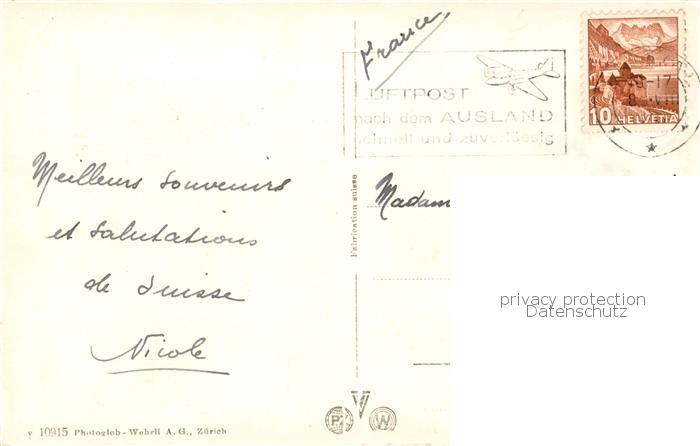 France
LUFTPOST
nach dem AUSLAND
schnell und zuverlässig
10 HELVETIA
Meilleurs souvenirs
et salutations
de Suisse
Nicole
Madam
Fabrication suisse
privacy protection
Datenschutz
10915 Photoglob-Wehrli A.G., Zürich